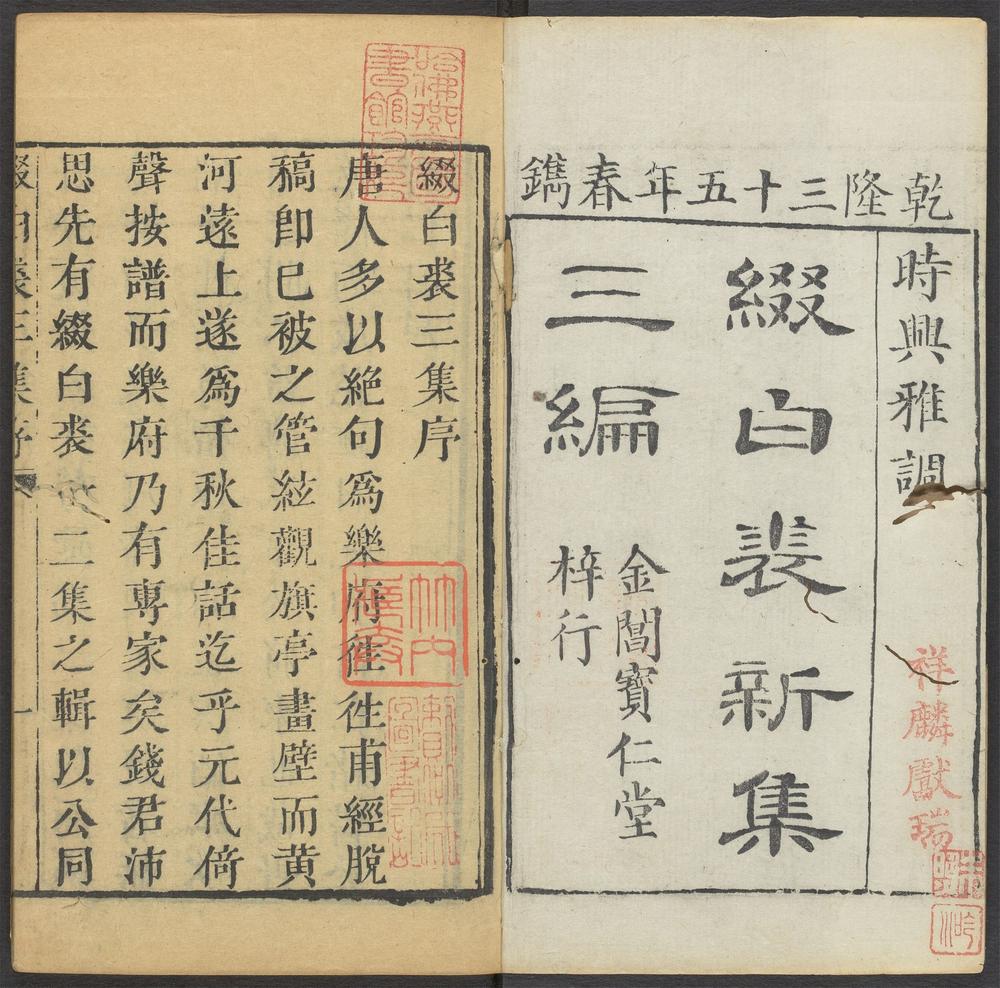 乾隆三十五年春鐫
時興雅調
綴白裘新集
三編
金閶寶仁堂
梓行
祥麟獻瑞
綴白裘三集序
唐人多以絶句爲樂府徃徃甫經脫
稿卽已被之管絃觀旗亭畫壁而黄
河遠上遂爲千秋佳話迄乎元代倚
聲按譜而樂府乃有專家矣錢君沛
思先有綴白裘 二集之輯以公同
綴白裘三集序
一